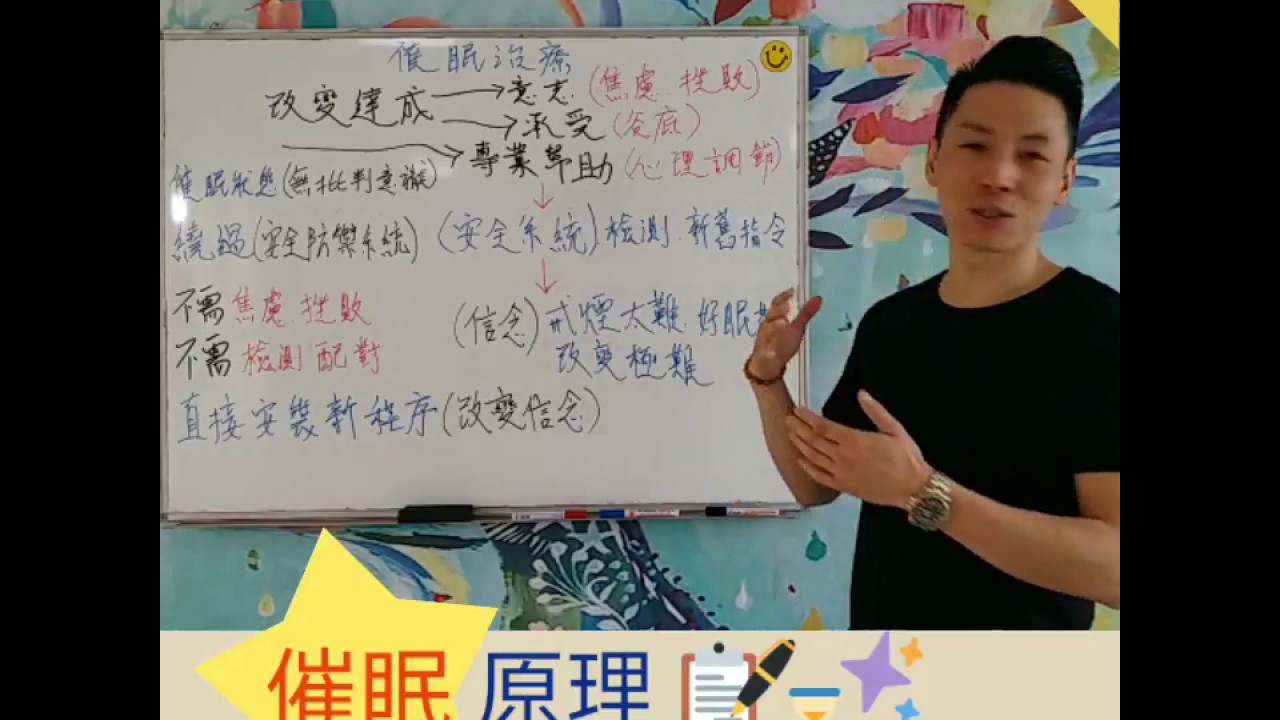 催眠治療
改變達成 → 意志 (焦慮 挫敗)
→ 承受 (谷底)
→ 專業幫助 (心理調節)
催眠狀態 (無批判意識)
繞過 (安全防禦系統) (安全系統) 檢測 新舊指令
不需 焦慮 挫敗
(信念) 戒煙太難 好眠
不需 檢測配對
改變極難
直接安裝新程序 (改變信念)
催眠 原理